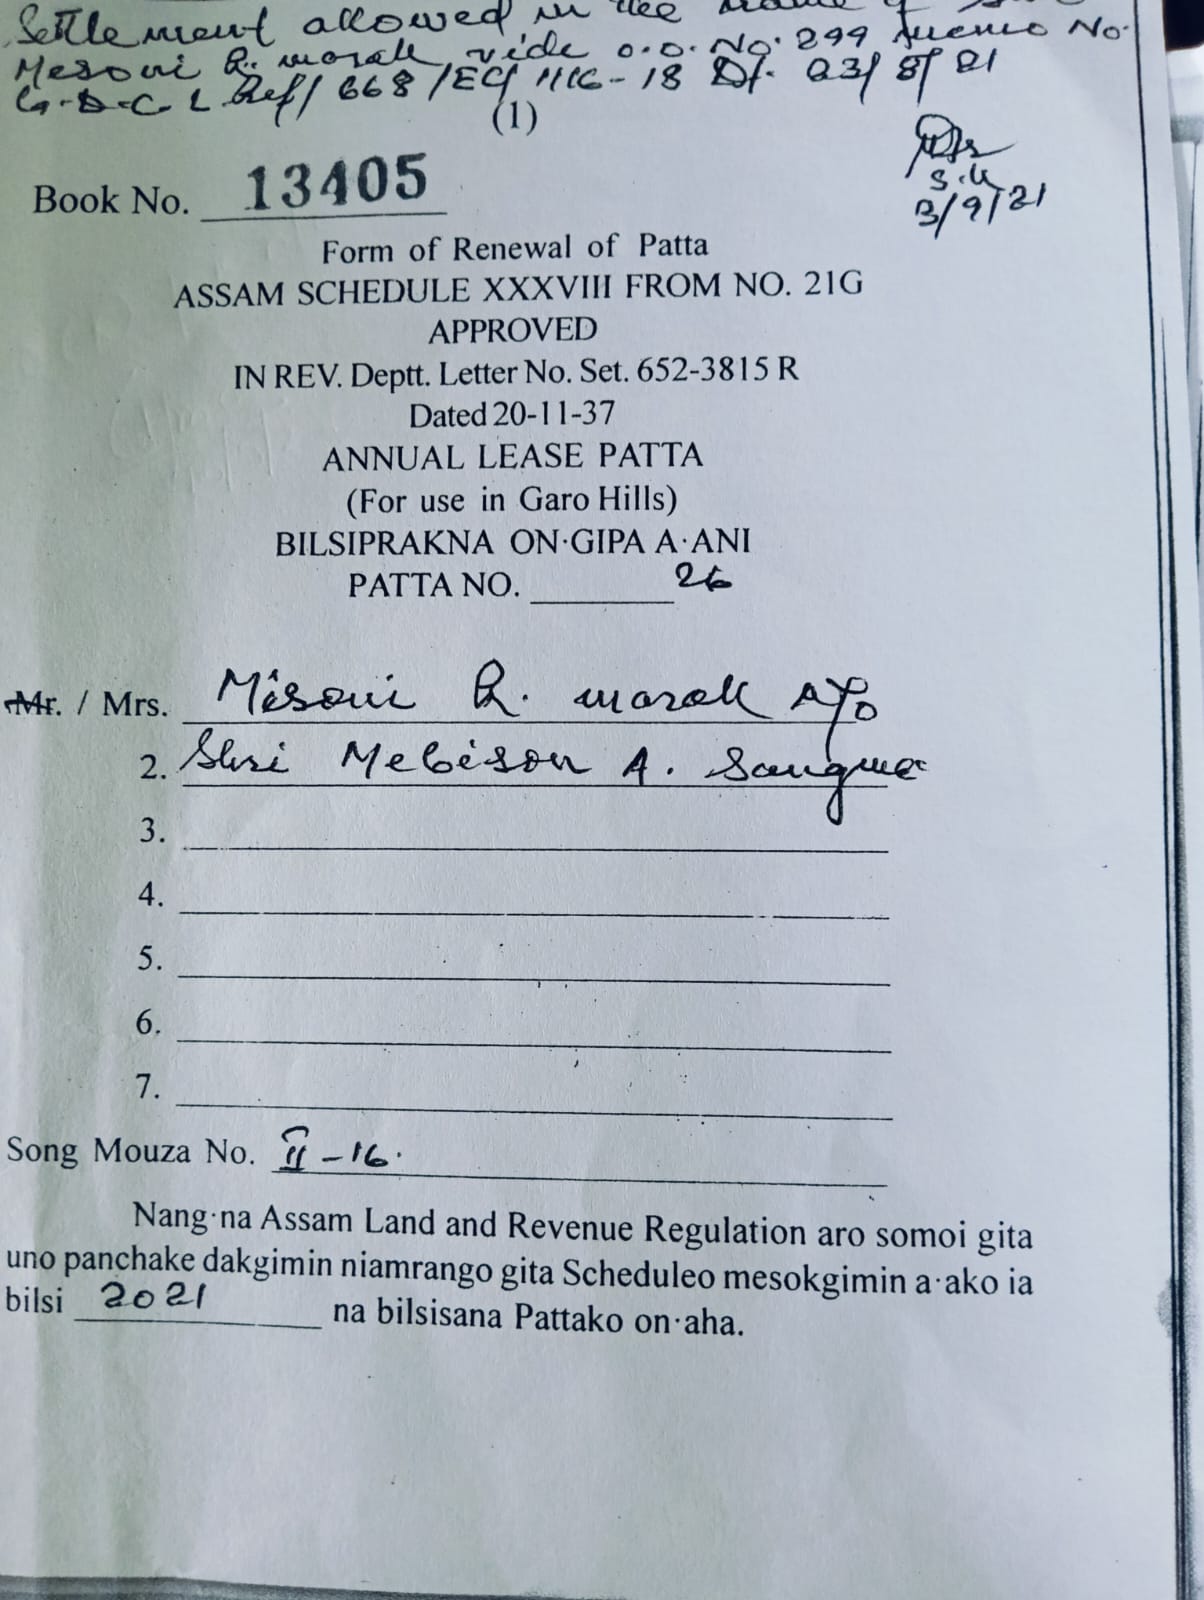 Settlement allowed in the name of
Mesoni R. marak vide o.o. No. 299 memo No.
G.D.C L Ref/ 668 /EC/ 1116-18 Dt. 23/8/21
(1)
S.K
3/9/21
Book No. 13405
Form of Renewal of Patta
ASSAM SCHEDULE XXXVIII FROM NO. 21G
APPROVED
IN REV. Deptt. Letter No. Set. 652-3815 R
Dated 20-11-37
ANNUAL LEASE PATTA
(For use in Garo Hills)
BILSIPRAKNA ON·GIPA A·ANI
PATTA NO. 26
Mr. / Mrs. Mesoni R. marak
2. Shri Mebison A. Sangma
3.
4.
5.
6.
7.
Song Mouza No. II-16.
Nang·na Assam Land and Revenue Regulation aro somoi gita
uno panchake dakgimin niamrango gita Scheduleo mesokgimin a·ako ia
bilsi 2021 na bilsisana Pattako on·aha.